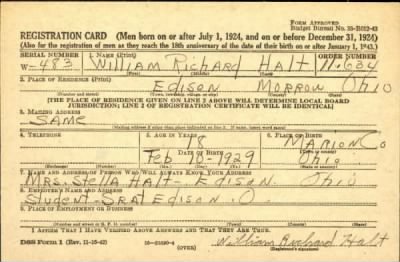 FORM APPROVED
Budget Bureau No. 33-R012-43
REGISTRATION CARD (Men born on or after July 1, 1924, and on or before December 31, 1924)
(Also for the registration of men as they reach the 18th anniversary of the date of their birth on or after January 1, 1943.)
SERIAL NUMBER 1. NAME (Print) ORDER NUMBER
W-483 William Richard Halt 11,684
(First) (Middle) (Last)
2. PLACE OF RESIDENCE (Print)
Edison Morrow Ohio
(Number and street) (Town, township, village, or city) (County) (State)
[THE PLACE OF RESIDENCE GIVEN ON LINE 2 ABOVE WILL DETERMINE LOCAL BOARD
JURISDICTION; LINE 2 OF REGISTRATION CERTIFICATE WILL BE IDENTICAL]
3. MAILING ADDRESS
SAME
[Mailing address if other than place indicated on line 2. If same, insert word same]
4. TELEPHONE 5. AGE IN YEARS 6. PLACE OF BIRTH
18 Marion Co
DATE OF BIRTH
Feb 10-1929 Ohio
(Exchange) (Number) (Mo.) (Day) (Yr.) (State or country)
7. NAME AND ADDRESS OF PERSON WHO WILL ALWAYS KNOW YOUR ADDRESS
Mrs. Stella Halt- Edison. Ohio
8. EMPLOYER'S NAME AND ADDRESS
Student- Edison. O.
9. PLACE OF EMPLOYMENT OR BUSINESS
(Number and street or R. F. D. number) (Town) (County) (State)
I AFFIRM THAT I HAVE VERIFIED ABOVE ANSWERS AND THAT THEY ARE TRUE.
DSS Form 1 (Rev. 11-16-42) (OVER) William Richard Halt
(Registrant's signature)